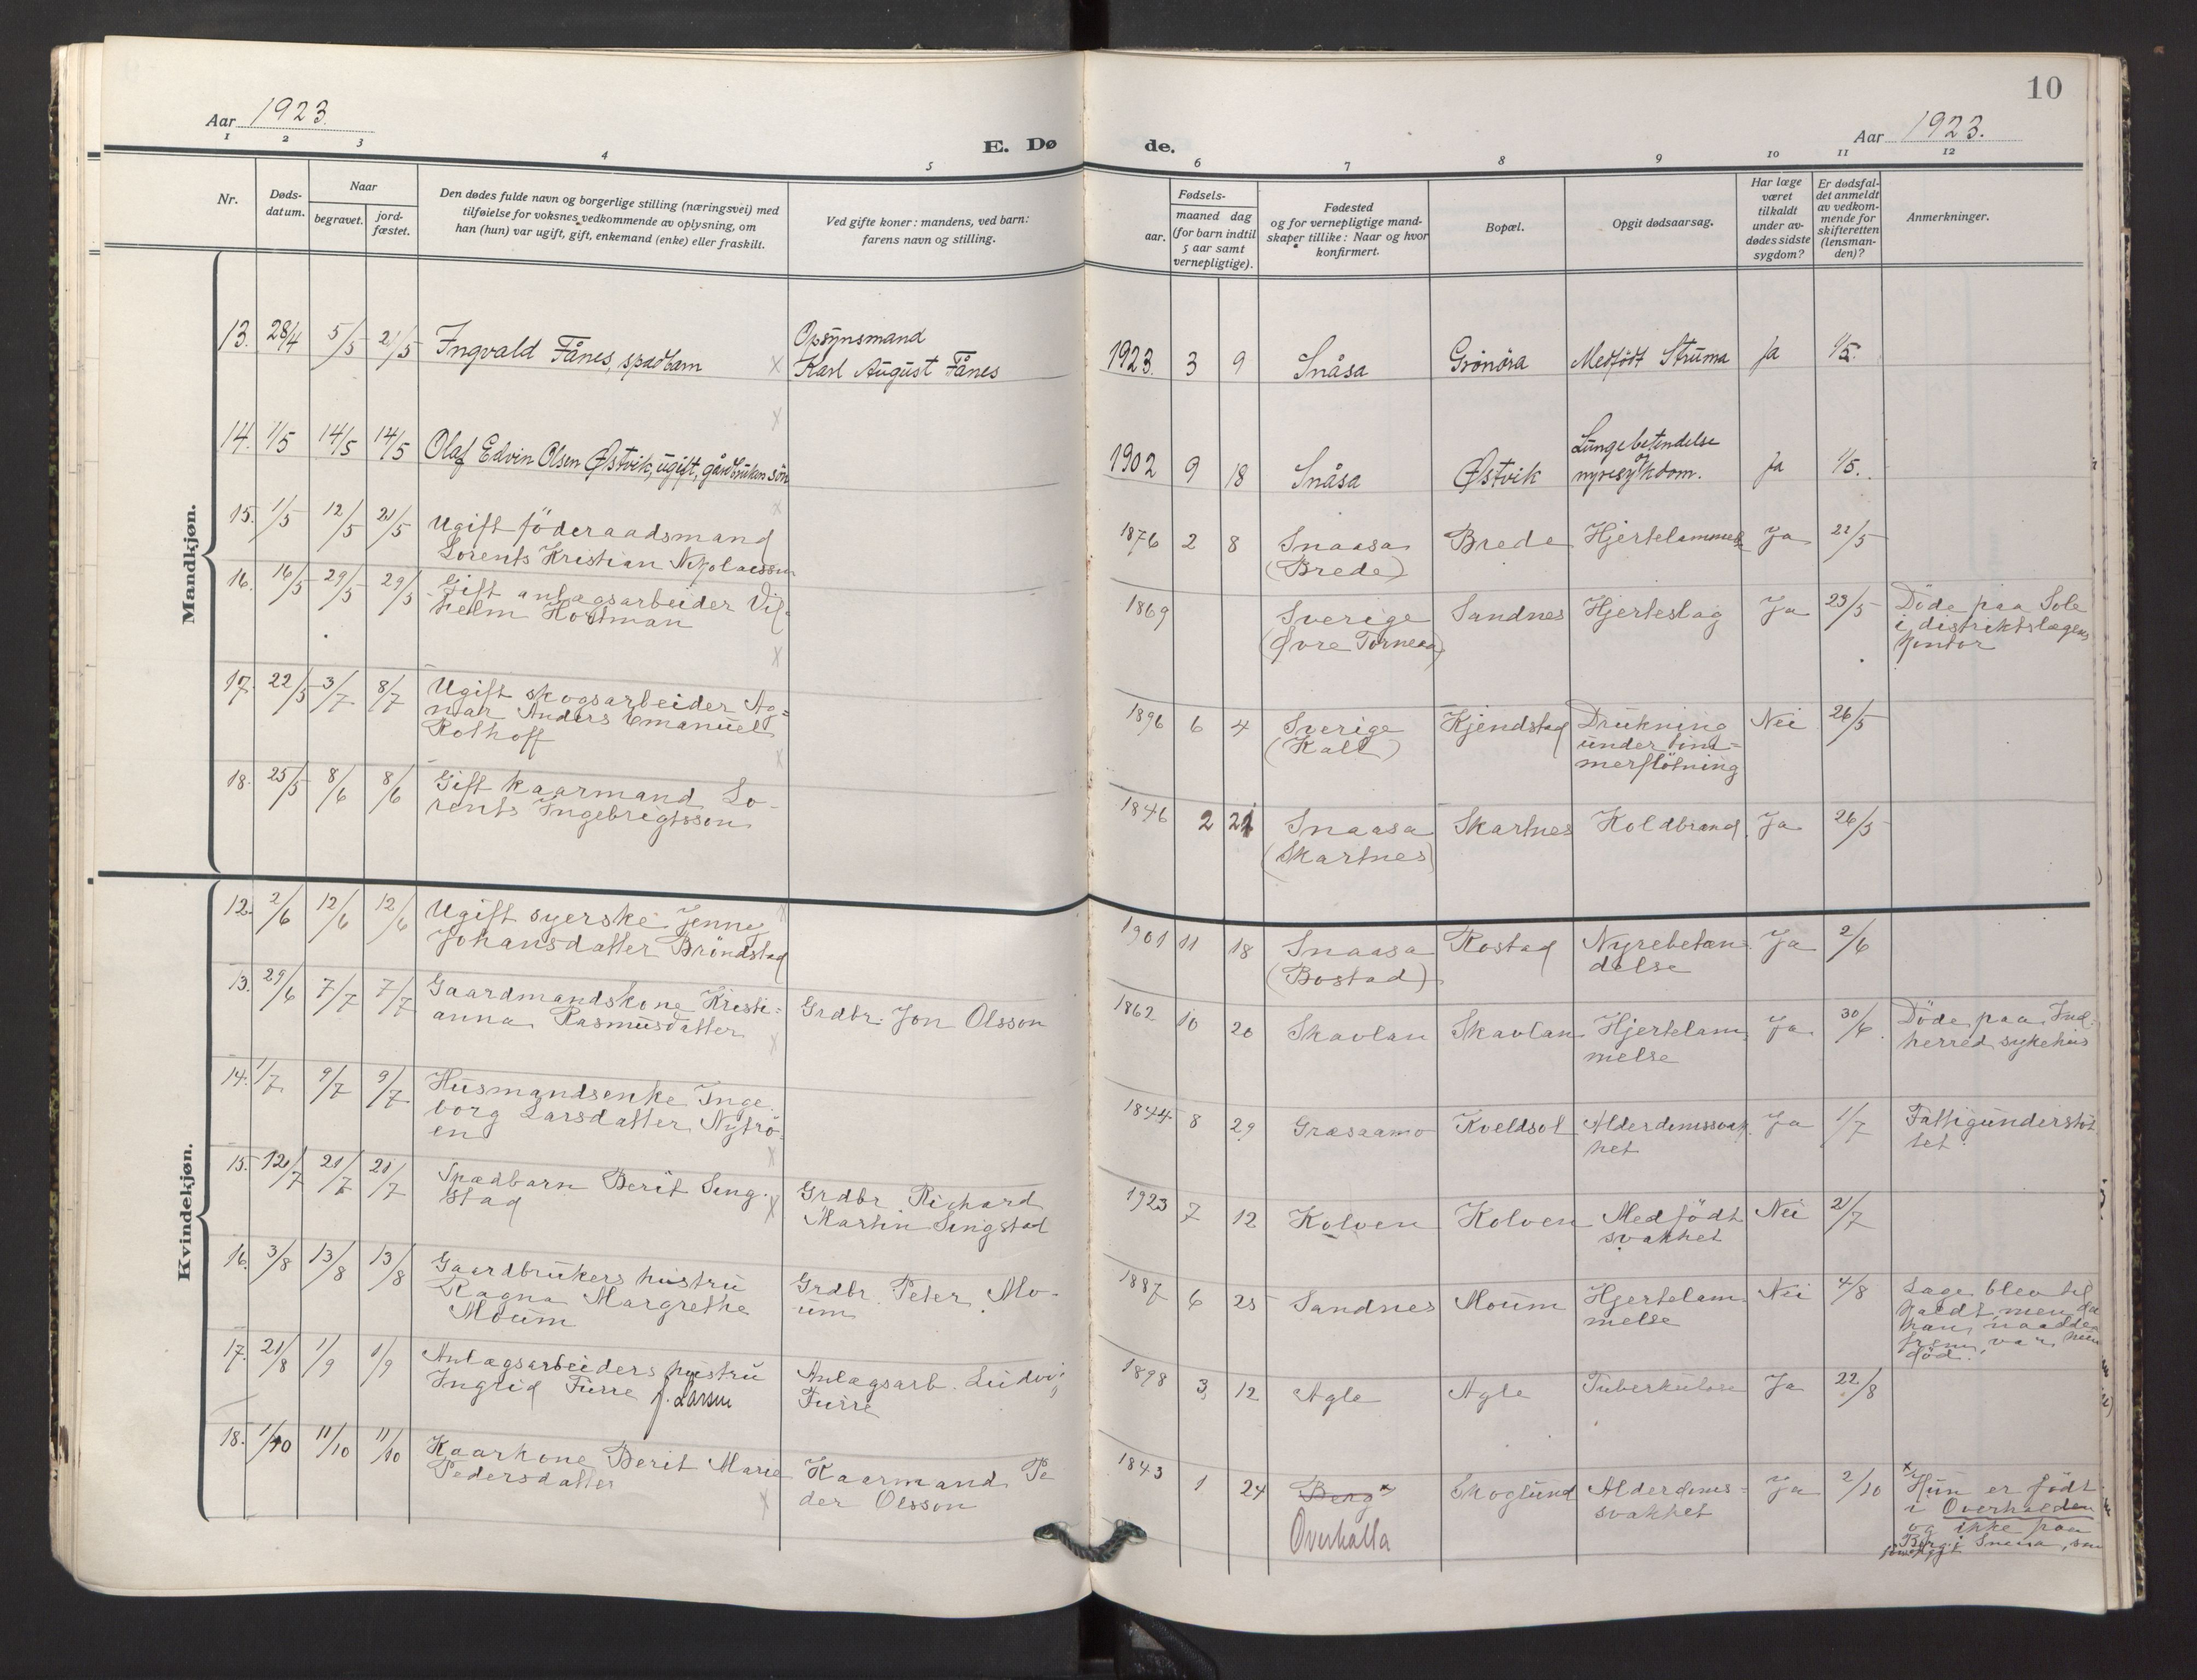 10
Aar 1923.
Aar 1923.
E. Dø
de.
1 2 3 4 5
6 7 8 9 10 11 12
Nr.
Døds-
datum.
Naar
begravet.
jord-
fæstet.
Den dødes fulde navn og borgerlige stilling (næringsvei) med
tilføielse for voksnes vedkommende av oplysning, om
han (hun) var ugift, gift, enkemand (enke) eller fraskilt.
Ved gifte koner: mandens, ved barn:
farens navn og stilling.
Fødsels-
aar.
maaned dag
(for barn indtil
5 aar samt
vernepligtige).
Fødested
og for vernepligtige mand-
skaper tillike: Naar og hvor
konfirmert.
Bopæl.
Opgit dødsaarsag.
Har læge
været
tilkaldt
under av-
dødes sidste
sygdom?
Er dødsfal-
det anmeldt
av vedkom-
mende for
skifteretten
(lensman-
den)?
Anmerkninger.
Mandkjøn.
13. 28/4 5/5 21/5 Ingvald Fånes, spædbarn
Opsynsmand
Karl August Fånes
1923. 3 9 Snåsa Grönöra Medfödt Struma Ja 1/5.
14. 1/5 14/5 14/5 Olaf Edvin Olsen Østvik, ugift, gårdbrukersön
1902 9 18 Snåsa Østvik Lungebetendelse
og
nyresykdom. Ja 1/5.
15. 1/5 12/5 21/5 Ugift föderaadsmand
Lorents Kristian Nikolaisson
1876 2 8 Snaasa
(Brede) Brede Hjertelammelse Ja 22/5
16. 16/5 29/5 29/5 Gift anlægsarbeider Vil-
helm Hortman
1869 Sverige
(Øvre Torneaa) Sandnes Hjerteslag Ja 23/5 Döde paa Sole
i distriktslægens
kontor
17. 22/5 3/7 8/7 Ugift skogsarbeider Ag=
nar Anders Emanuel
Rolhoff
1896 6 4 Sverige
(Kall) Kjendstad Drukning
under tim=
merflötning Nei 26/5
18. 25/5 8/6 8/6 Gift kaarmand Lo-
rents Ingebrigtsson
1846 2 21 Snaasa
(Skartnes) Skartnes Koldbrand Ja 26/5
Kvindekjøn.
12. 2/6 12/6 12/6 Ugift syerske Jenny
Johansdatter Bröndstad
1901 11 18 Snaasa
(Bostad) Rostad Nyrebetæn
delse Ja 2/6
13. 29/6 7/7 7/7 Gaardmandskone Kristi=
anna Rasmusdatter
Grdbr. Jon Olsson
1862 10 20 Skavlan Skavlan Hjertelam
melse Ja 30/6 Döde paa Ind-
herred sykehus
14. 1/7 9/7 9/7 Husmandsenke Inge
borg Larsdatter Nytrö
en
1844 8 29 Græsaamo Kveldsol Alderdomssvak
het Ja 1/7 Fattigunderstöt
tet.
15. 12/7 21/7 21/7 Spædbarn Berit Sing-
stad
Grdbr. Richard
Martin Singstad
1923 7 12 Kolven Kolven Medfödt
svakhet Nei 21/7
16. 3/8 13/8 13/8 Gaardbrukers hustru
Ragna Margrethe
Moum
Grdbr. Peter Mo-
um
1887 6 25 Sandnes Moum Hjertelam
melse Nei 4/8 Læge blev til
kaldt, men da
han naadde
frem, var hun
död.
17. 21/8 1/9 1/9 Anlægsarbeiders hustru
Ingrid Furre f. Larsen
Anlægsarb. Ludvi
Furre
1898 3 12 Agle Agle Tuberkulose Ja 22/8
18. 1/10 11/10 11/10 Kaarkone Berit Marie
Pedersdatter
Kaarmand Pe
der Olsson
1843 1 24 Berg x
Overhalla Skoglund Alderdoms-
svakhet Ja 2/10 x Hun er födt
i Overhalden
og ikke paa
Berg i Snaasa, som